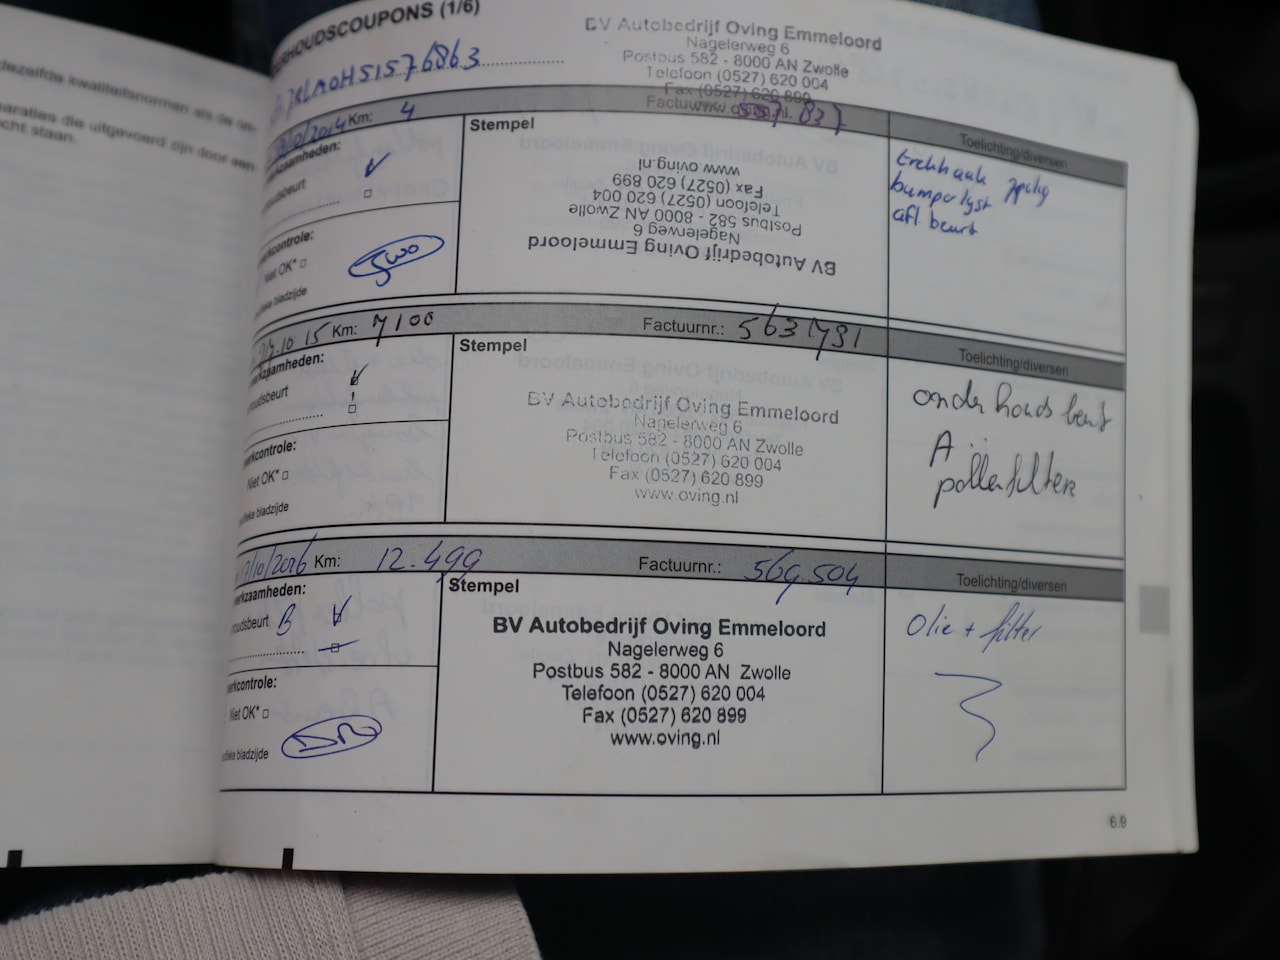 dezelfde kwaliteitsnormen als de on-
paraties die uitgevoerd zijn door een
cht staan.
RHOUDSCOUPONS (1/6)
BV Autobedrijf Oving Emmeloord
Nagelerweg 6
Postbus 582 - 8000 AN Zwolle
Telefoon (0527) 620 004
Fax (0527) 620 899
www.oving.nl
/10/2014 Km: 4
Factuurnr.:
Toelichting/diversen
rkzaamheden:
oudsbeurt
Stempel
BV Autobedrijf Oving Emmeloord
Nagelerweg 6
Postbus 582 - 8000 AN Zwolle
Telefoon (0527) 620 004
Fax (0527) 620 899
www.oving.nl
trekhaak
bumperlyst
afl beurt
erkcontrole:
Niet OK*
ifieke bladzijde
10 15 Km: 7100
Factuurnr.: 5631791
Toelichting/diversen
erkzaamheden:
houdsbeurt
Stempel
BV Autobedrijf Oving Emmeloord
Nagelerweg 6
Postbus 582 - 8000 AN Zwolle
Telefoon (0527) 620 004
Fax (0527) 620 899
www.oving.nl
onderhouds beurt
A
pollenfilter
erkcontrole:
Niet OK*
ifieke bladzijde
/10/2016 Km: 12.499
Factuurnr.: 569.504
Toelichting/diversen
erkzaamheden:
houdsbeurt B
Stempel
BV Autobedrijf Oving Emmeloord
Nagelerweg 6
Postbus 582 - 8000 AN Zwolle
Telefoon (0527) 620 004
Fax (0527) 620 899
www.oving.nl
Olie + filter
erkcontrole:
Niet OK*
ifieke bladzijde
6.9